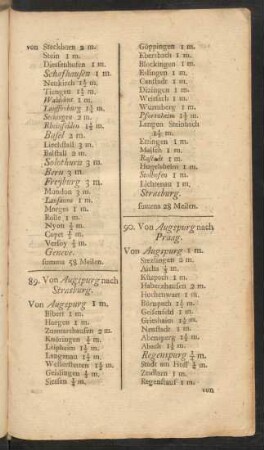 von Steckborn 2 m.
Stein 1 m.
Diessenhofen 1 m.
Schafhausen 1 m.
Neukirch 1½ m.
Tiengen 1½ m.
Waldshut 1 m.
Lauffenburg 1½ m.
Seckingen 2 m.
Rheinfelden 1½ m.
Basel 2 m.
Liechstall 3 m.
Balstall 2 m.
Solothurn 3 m.
Bern 3 m.
Freyburg 3 m.
Mundau 3 m.
Lausanne 1 m.
Morges 1 m.
Rolle 1 m.
Nyon ½ m.
Copet ¾ m.
Versoy ½ m.
Geneve.
summa 58 Meilen.
89. Von Augspurg nach
Strasburg.
Von Augspurg 1 m.
Bibert 1 m.
Horgen 1 m.
Zusmarshausen 2 m.
Knöringen
Leipheim 1 m.
Langenau 1½ m.
Westerstetten 1½ m.
Geislingen
Siessen
Göppingen 1 m.
Ebersbach 1 m.
Blockingen 1 m.
Eslingen 1 m.
Canstadt 1 m.
Dizingen 1 m.
Weissach 1 m.
Wurmberg 1 m.
Pfortzheim 1 m.
Langen Steinbach
Ettingen 1 m.
Malsch 1 m.
Rastadt 1 m.
Hugelsheim 1 m.
Stolhofen 1 m.
Lichtenau 1 m.
Strasburg.
summa 28 Meilen.
90. Von Augspurg nach
Praag.
Von Augspurg 1 m.
Stezlingen 2 m.
Aicha 1½ m.
Kitzpoch 1 m.
Habertshausen 2 m.
Hochenwart 1 m.
Börnpach 1½ m.
Geisenfeld 1 m.
Griesheim 1½ m.
Neustadt 1 m.
Abensperg 1½ m.
Abach 1½ m.
Regenspurg ¼ m.
Stadt am Hoff
Zeidlarn 1 m.
Regenstauf 1 m.
von